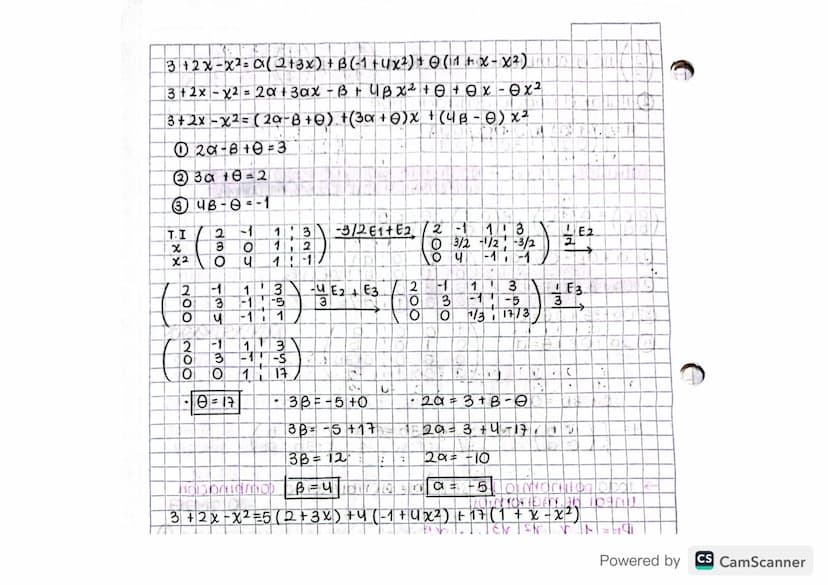 3+2x-x²= α(2+3x)+β(-1+4x²)+θ(1+x-x²)
3+2x-x² = 2α+3αx -β+4βx²+θ+θx-θx²
3+2x-x²=(2α-β+θ)+(3α+θ)x+(4β-θ)x²
① 2α-β+θ=3
② 3α+θ=2
③ 4β-θ=-1
T.I 2 -1 1 ¦ 3 -3/2E1+E2 2 -1 1 ¦ 3 1/2 E2
x 3 0 1 ¦ 2 0 3/2 -1/2 ¦ -3/2
x² 0 4 1 ¦ -1 0 4 -1 ¦ -1
2 -1 1 ¦ 3 -4/3 E2 + E3 2 -1 1 ¦ 3 1/3 E3
0 3 -1 ¦ -5 0 3 -1 ¦ -5
0 4 -1 ¦ 1 0 0 1/3 ¦ 17/3
2 -1 1 ¦ 3
0 3 -1 ¦ -5
0 0 1 ¦ 17
· θ=17 · 3β=-5+θ · 2α=3+β-θ
3β=-5+17 2α=3+4-17
3β=12 2α=-10
β=4 α=-5
3+2x-x²=5(2+3x)+4(-1+4x²)+17(1+x-x²)
Powered by CS CamScanner